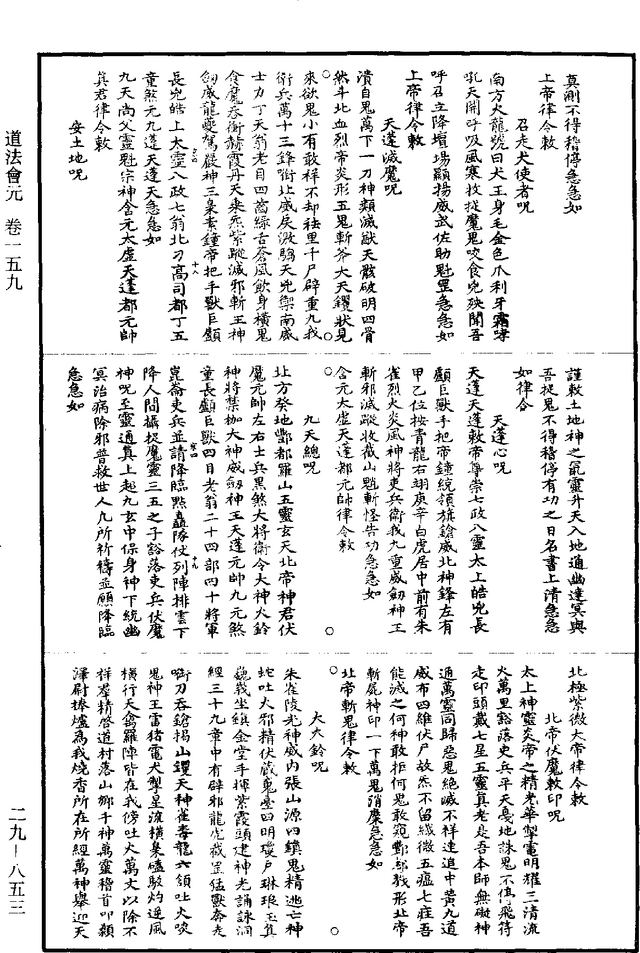 莫測不得稽停急急如
上帝律令敕
召走犬使者呪
南方火龍號曰犬王身毛金色爪利牙霜哮
吼天關呼吸風寒收捉魔鬼咬食兇殃聞吾
呼召立降壇場顯揚威武佐助魁罡急急如
上帝律令敕
天蓬滅魔呪
潰自鬼萬下一刀神類滅獸天骸破明四骨
然斗北血烈帝炎形五鬼斬斧大天钁狀見
來欲鬼小有敢祥不却袪里千尸辟重九我
衛兵萬十三鋒衛北威戾激騶天兇禦南威
士力丁天翁老目四齒綠舌蒼風飲身橫鬼
食魔吞衡赫霞丹天乘炁紫蹤滅邪斬王神
劍威龍夔駕嚴神三梟素鐘帝把手獸巨顱
長兇皓上太靈八政七翁北刁高司都丁五
童煞元九逢天逢天急急如
九天尚父靈魁宗神含元太虛天蓬都元帥
真君律令敕
安土地呪
謹敕土地神之最靈升天入地通幽達冥與
吾捉鬼不得稽停有功之日名書上清急急
如律令
天蓬心呪
天蓬天蓬敕帝尊崇七政八靈太上皓兇長
顱巨獸手把帝鐘統領旌鎗威北神鋒左有
甲乙位按青龍右翊庚辛白虎居中前有朱
雀烈火炎風神將吏兵衛我九重威劍神王
斬邪滅蹤收截山魈斬怪告功急急如
含元太虛天蓬都元帥律令敕
九天總呪
北方癸地酆都羅山五靈玄天北帝神君伏
魔元帥左右士兵黑煞大將衛令大神火鈴
神將禁枷大神威劍神王天蓬元帥九元煞
童長顱巨獸四目老翁二十四部四十將軍
崑崙吏兵並請降臨點矗隊仗列陣排雲下
降人間攝捉魔靈三五之子豁落吏兵伏魔
神呪至靈通真上起九玄中保身神下統幽
冥治病除邪普救世人凡所祈禱並願降臨
急急如
北極紫微大帝律令敕
北帝伏魔敕印呪
太上神靈炎帝之精光華掣電明耀三清流
火萬里豁落吏兵平天憂地誅鬼不停飛符
走印頭戴七星五靈真老是吾本師無礙神
通萬靈同歸惡鬼絕滅不祥速追中黃九道
威布四維伏尸故炁不留纖微五瘟七疰吾
能滅之何神敢拒何鬼敢窺酆都戮形北帝
斬屍神印一下萬鬼消糜急急如
北帝斬鬼律令敕
大火鈴呪
朱雀陵光神威內張山源四鎮鬼精逃亡神
蛇吐火邪精伏藏鬼憂四明瓊戶琳琅玉真
巍峩坐鎮金堂手揮紫霞頭建神光誦詠洞
經三十九章中有辟邪龍虎截罡猛獸奔走
㘅刀吞鎗揭山钁天神雀毒龍六領吐火啖
鬼神王雷猪電犬掣星流橫梟磕駁灼逆風
橫行天禽羅陣皆在我傍吐火萬丈以除不
祥群精啓道村落山鄉千神萬靈稽首叩顙
澤尉捧爐為我燒香所在所經萬神舉迎天
道法會元 卷一五九
二九—八五三